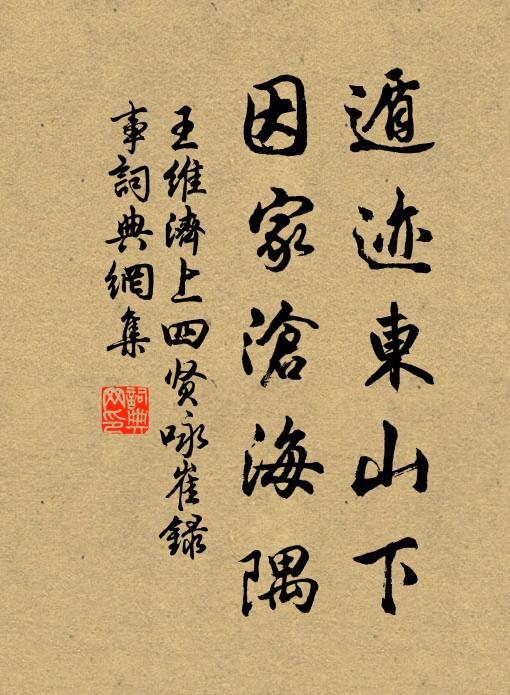 遁迹東山下
因家滄海隅
王維濟上四贤咏崔録
事詞典網集
詞典
网印